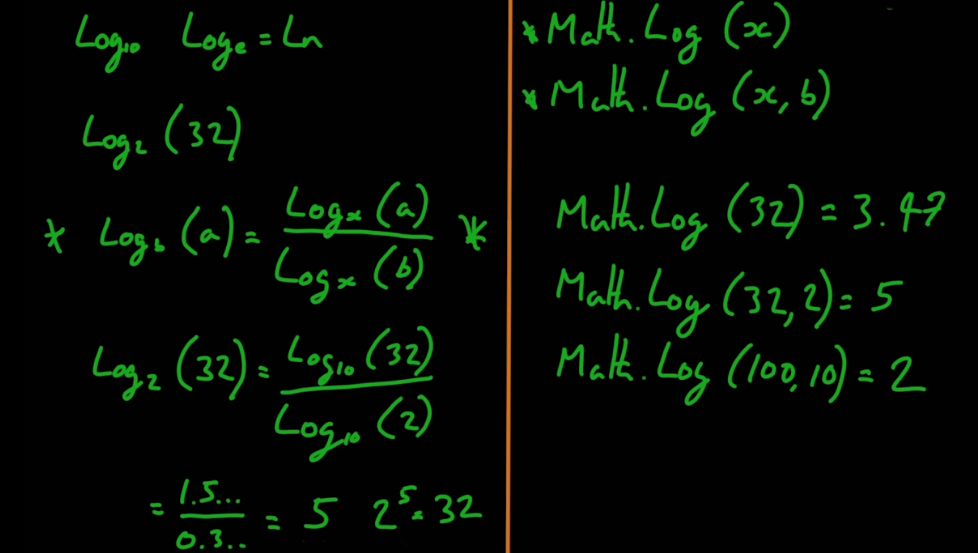 Log₁₀ Logₑ = Ln
Log₂ (32)
* Log_b (a) = Logₓ (a) / Logₓ (b) *
Log₂ (32) = Log₁₀ (32) / Log₁₀ (2)
= 1.5... / 0.3.. = 5 2⁵ = 32
* Math.Log (x)
* Math.Log (x, b)
Math.Log (32) = 3.47
Math.Log (32, 2) = 5
Math.Log (100, 10) = 2